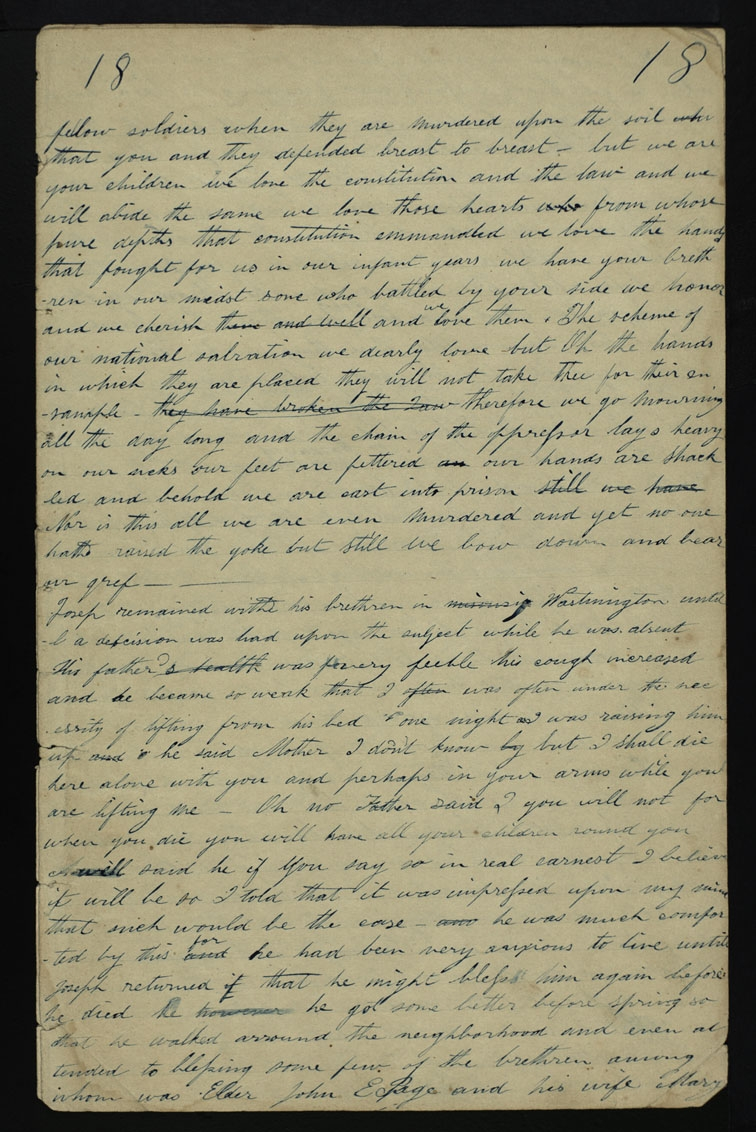 18 18
fellow soldiers when they are murdered upon the soil who
that you and they defended breast to breast — but we are
your children we love the constitution and the law and we
will abide the same we love those hearts who from whose
pure depths that constitution emmandted we love the hands
that fought for us in our infant years we have your breth
-ren in our midst some who battled by your side we honor
and we cherish them and well and we love them . The scheme of
our national salvation we dearly love but Oh the hands
in which they are placed they will not take thee for their en
-sample - they have broken the Law therefore we go mourning
all the day long and the chain of the oppressor lays heavy
on our necks our feet are fettered an our hands are shack
led and behold we are cast into prison still we have
Nor is this all we are even murdered and yet no one
hath raised the yoke but still we bow down and bear
our gref — —
Josep remained withe his brethren in missouri Washington until
-l a descision was had upon the subject while he was absent
His father's health was very feeble his cough increased
and he became so weak that I often was often under the nec
essity of lifting from his bed one night as I was raising him
up and he said Mother I don't know by but I shall die
here alone with you and perhaps in your arms while you
are lifting me — Oh no Father said I you will not for
when you die you will have all your children round you
will said he if you say so in real earnest I believe
it will be so I told that it was impressed upon my mind
that such would be the case — and he was much comfor
-ted by this and for he had been very anxious to live until
Joseph returned if that he might bless him again before
he died he however he got some better before spring so
that he walked arround the neighborhood and even at
tended to blessing some few of the brethren among
whom was Elder John E Page and his wife Mary